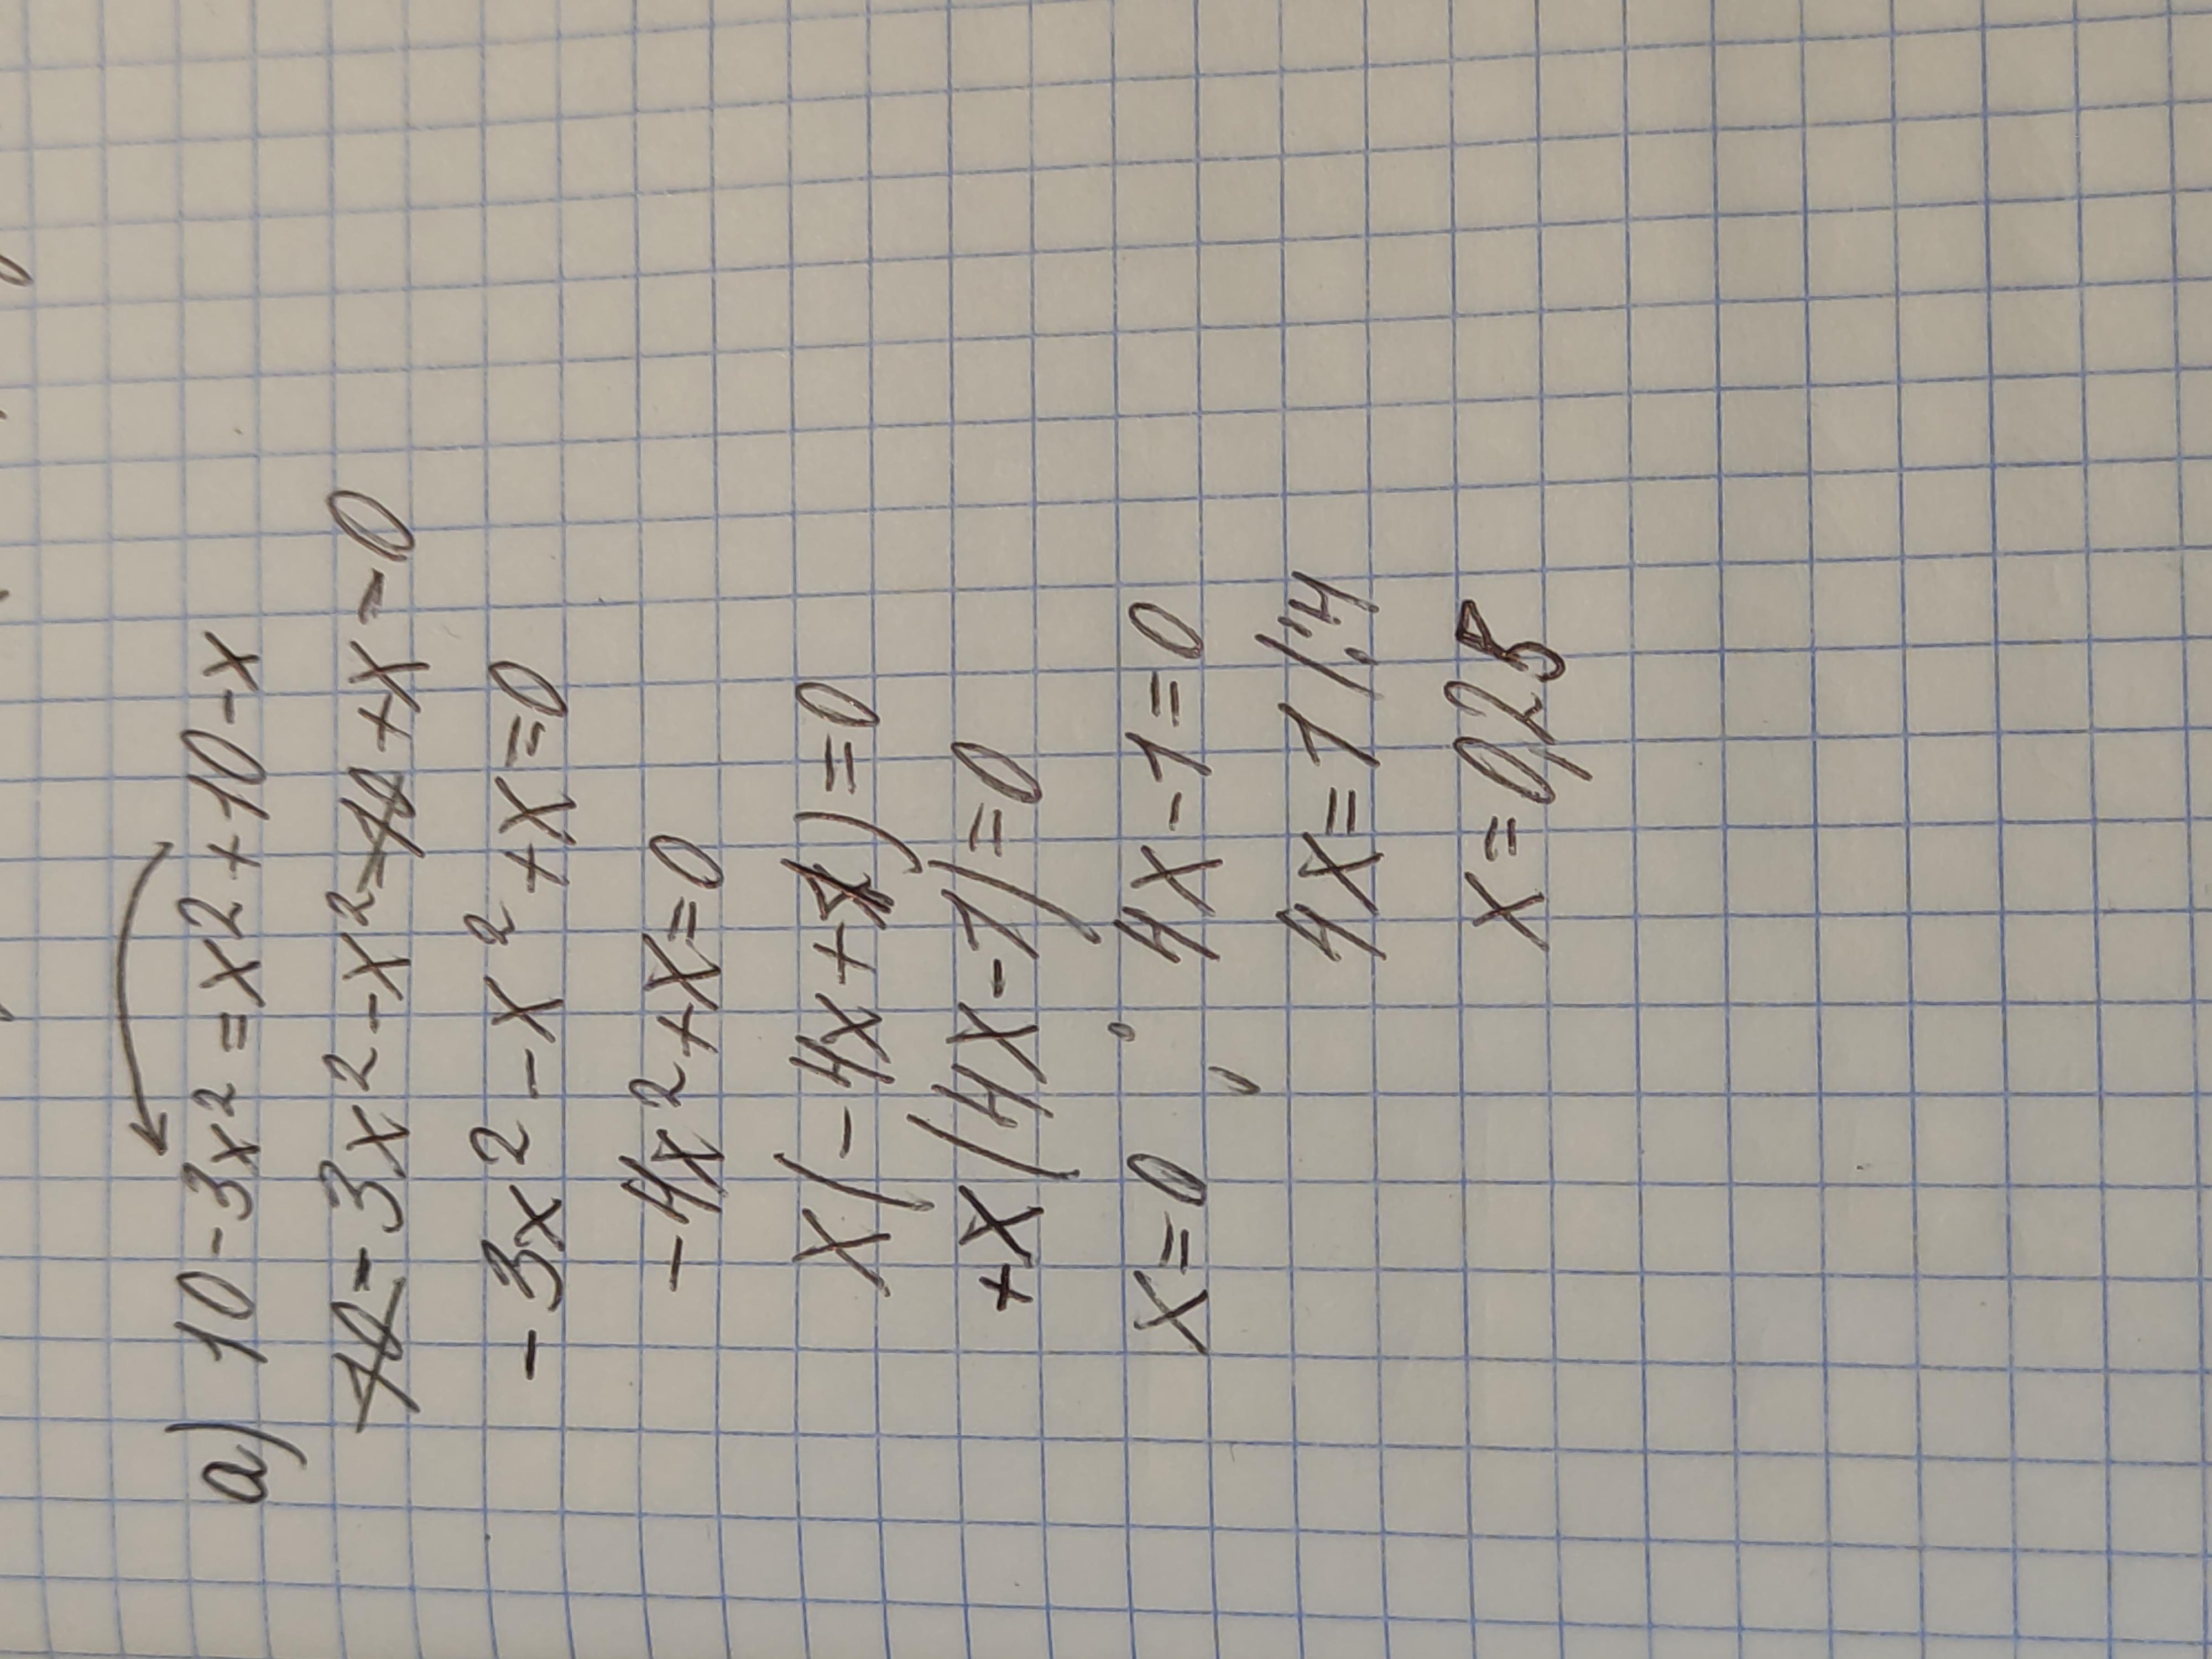 a) 10-3x² = x2+10-x
10-3x²-x²-10+x-0
-3x2-x²+x=0
-4x²+x=0
x(-4x+1)=0
+x(4x-1)=0
x=0, 4x-1=0
4x=1 /:4
x=0,25